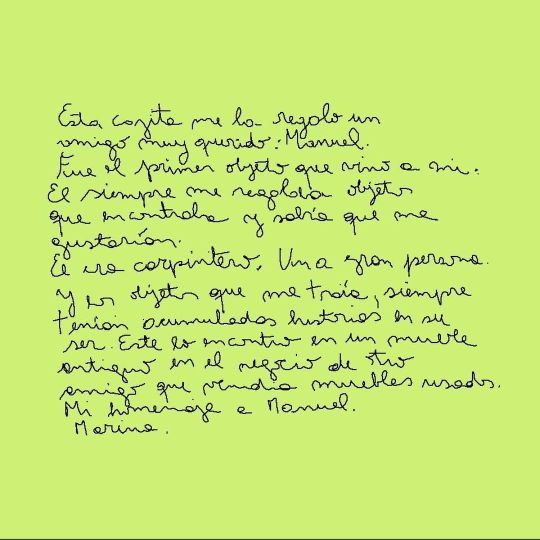 Esta cajita me la regalo un
amigo muy querido: Manuel.
Fue el primer objeto que vino a mi.
El siempre me regalaba objetos
que encontraba y sabía que me
gustarían.
El era carpintero. Una gran persona.
Y los objetos que me traía, siempre
tenían acumuladas historias en su
ser. Este lo encontro en un mueble
antiguo en el negocio de otro
amigo que vendia muebles usados.
Mi homenaje a Manuel.
Marina.